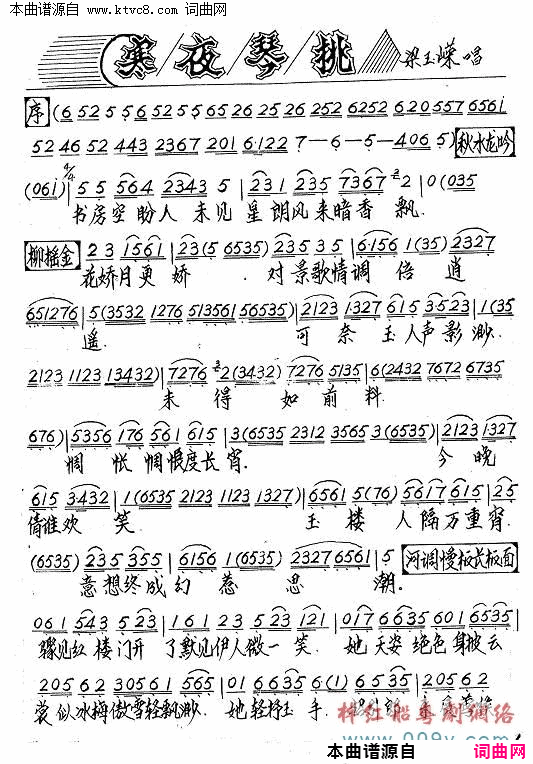 本曲谱源自 www.ktvc8.com 词曲网
寒夜琴挑 梁玉嵘 唱
序 (6 52 5 5 6 52 5 5 65 26 25 26 252 6252 620 557 656i
52 46 52 443 2367 201 6·122 7 — 6 — 5 — 406 5) 秋水龙吟
(061) | 5 5 564 2343 5 | 231 235 7367 2 | 0 (035
书房空盼人 未见 星朗风来暗香飘.
柳摇金 2 3 1561 | 23 (5 6535) 235 3 5 | 6156 1 (35) 2327
花娇月更娇. 对景歌情调倍逍
651276 | 5 (3532 1276 513561 56535) | 2123 1327 615 3523 | 1 (35
遥. 可奈玉人声影渺.
2123 1123 13432) | 7276 2 (3432) 7276 5135 | 6 (2432 7672 6735
未得如前料
676) | 5356 176 561 615 | 3 (6535 2312 3565 3 (6535) | 2123 1327
惆怅惆恨度长宵. 今晚
615 3432 | 1 (6535 2123 1123 1327) | 6561 5 (76) 5617 615 | 25
倩谁欢笑 玉楼人隔万重霄.
(6535) 235 355 | 6156 1 (6535) 2327 6561 | 5 河调慢板长板面
意想终成幻惹思潮.
061 543 5 23 | 161 23 5 23 121 | 017 6635 601 6535 |
骤见红楼门开 了默见伊人微一笑. 她天姿绝色身披云
2056 2 3056 1 565 | 01 6 635 6 (1) 6 535 | 2056 2
裳似冰梅傲雪轻飘渺. 她轻抒玉手.
梓红船粤剧网络
本曲谱源自 词曲网